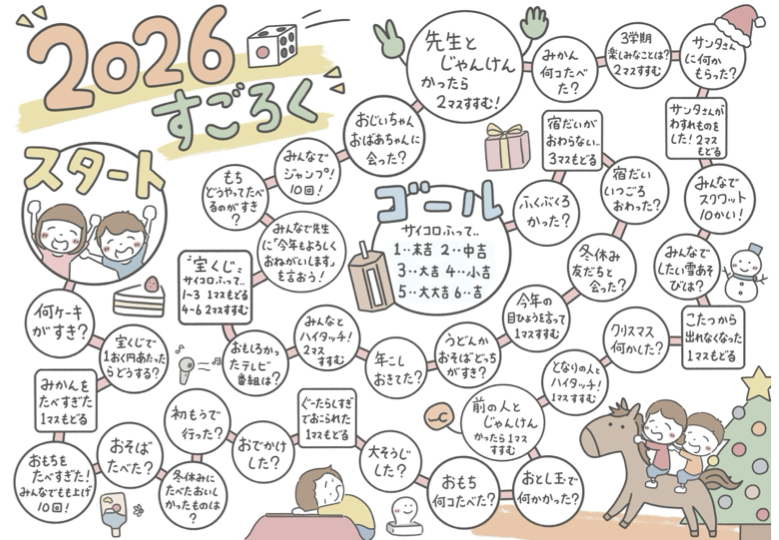 2026
すごろく
スタート
何ケーキ
がすき?
宝くじで
1おく円あたった
らどうする?
みかんを
たべすぎた
1マスもどる
おもちを
たべすぎた!
みんなでもち上げ
10回!
おそば
たべた?
冬休みに
たべたおいし
かったものは
?
初もうで
行った?
おでかけ
した?
ぐーたらしすぎ
ておこられた
1マスもどる
大そうじ
した?
おもち
何コたべた?
おとし玉で
何かかった?
前の人と
じゃんけん
かったら1マス
すすむ
となりの人と
ハイタッチ!
1マスすすむ
クリスマス
何かした?
こたつから
出れなくなった
1マスもどる
みんなで
したい雪あそ
びは?
みんなで
スクワット
10かい!
サンタさんが
わすれものを
した! 2マス
もどる
サンタさん
に何か
もらった?
3学期
楽しみなことは?
2マスすすむ
みかん
何コたべ
た?
先生と
じゃんけん
かったら
2マスすすむ!
おじいちゃん
おばあちゃんに
会った?
みんなで
ジャンプ!
10回!
もち
どうやってたべ
るのがすき
?
みんなで先生
に「今年もよろしく
おねがいします」
も言おう!
宝くじ
サイコロふって..
1~3 1マスもどる
4~6 2マスすすむ
おもしろかっ
たテレビ
番組は?
みんなと
ハイタッチ!
2マス
すすむ
年こし
おきてた?
うどんか
おそばどっち
がすき?
今年の
目ひょうを言って
1マスすすむ
冬休み
友だちと
会った?
宿だい
いつごろ
おわった?
宿だいが
おわらない..
3マスもどる
ふくぶくろ
かった?
ゴール
サイコロふって..
1‥末吉 2‥中吉
3‥大吉 4‥小吉
5‥大大吉 6‥吉